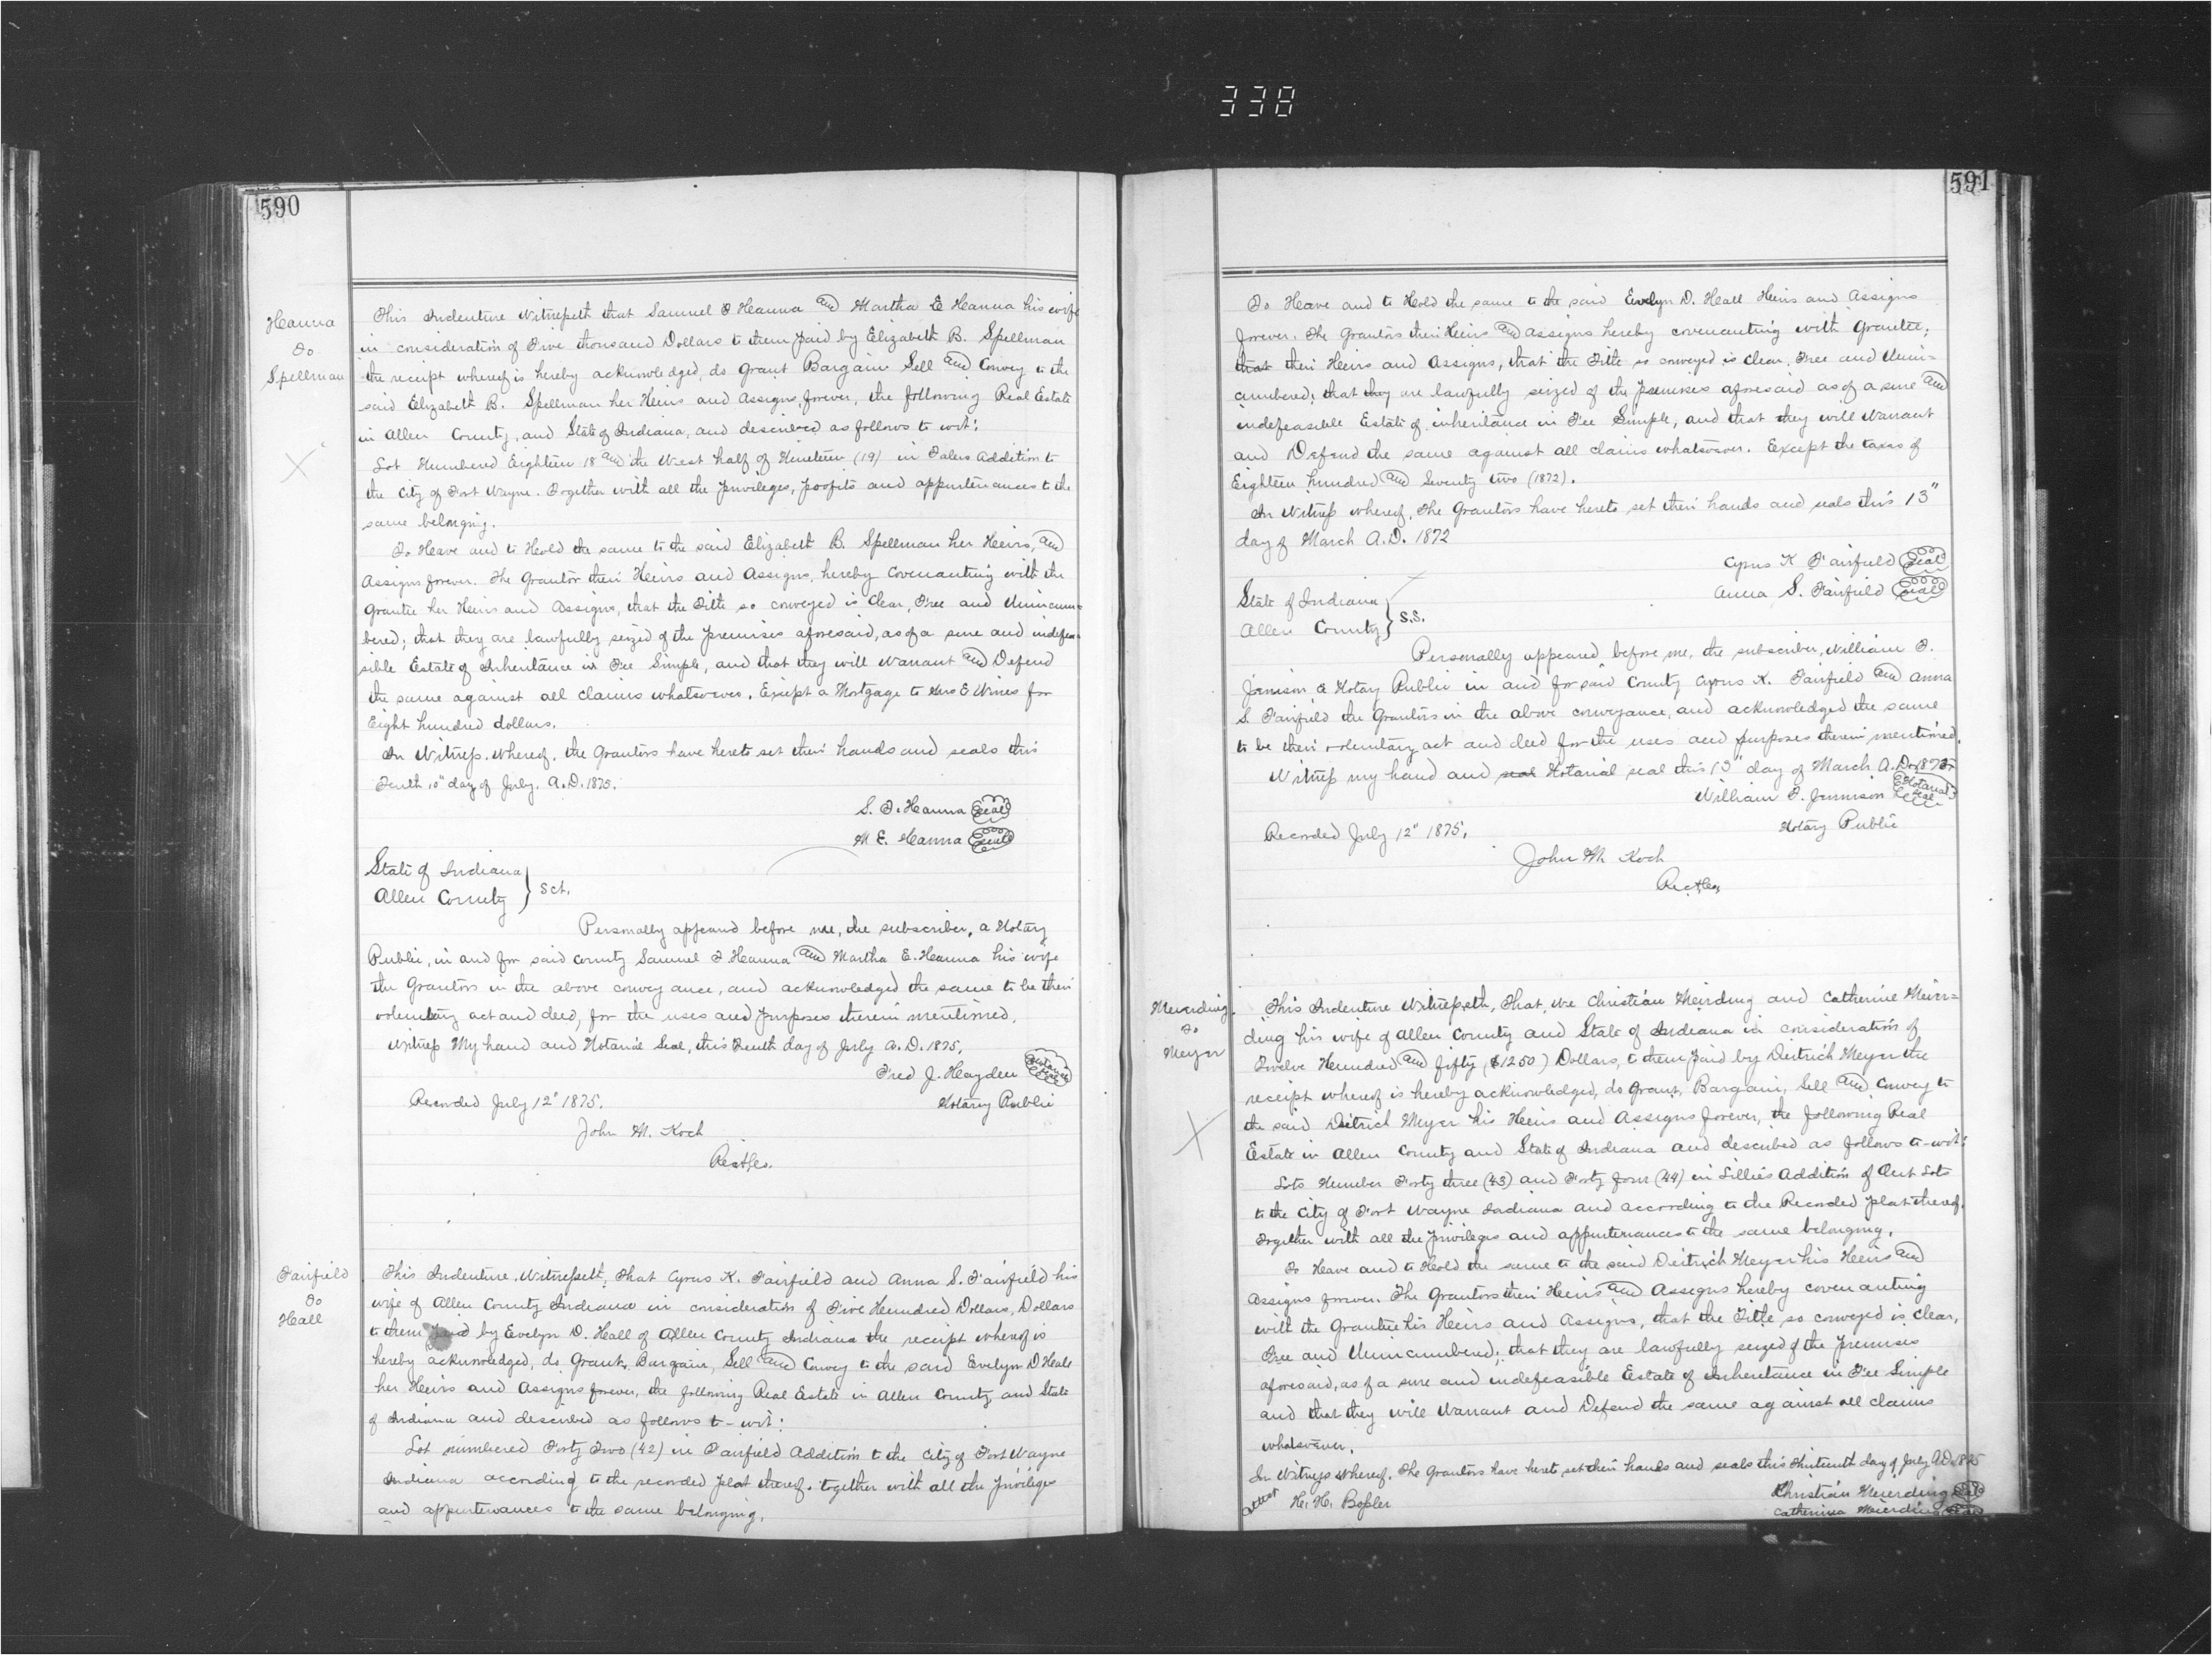 338
590
Hanna
To
Spellman
This Indenture Witnesseth that Samuel T Hanna and Martha E Hanna his wife
in consideration of Five thousand Dollars to them paid by Elizabeth B. Spellman
the receipt whereof is hereby acknowledged, do Grant Bargain Sell and Convey to the
said Elizabeth B. Spellman her Heirs and Assigns, forever, the following Real Estate
in Allen County, and State of Indiana, and described as follows to wit:
Lot Numbered Eighteen 18 and the West half of Nineteen (19) in Tabers Addition to
the City of Fort Wayne. Together with all the privileges, profits and appurtenances to the
same belonging.
To Have and to Hold the same to the said Elizabeth B. Spellman her Heirs, and
Assigns forever. The Grantor their Heirs and Assigns, hereby Covenanting with the
Grantee her Heirs and Assigns, that the Title so conveyed is Clear, Free and Unincum=
bered; that they are lawfully seized of the premises aforesaid, as of a sure and indefea=
sible Estate of Inheritance in Fee Simple, and that they will Warrant and Defend
the same against all claims whatsoever. Except a Mortgage to E Wines for
Eight hundred dollars.
In Witness Whereof, the Grantors have hereto set their hands and seals this
Tenth 10" day of July, A.D. 1875.
S. T. Hanna Seal
M E. Hanna Seal
State of Indiana
Allen County } Sct.
Personally appeared before me, the subscriber, a Notary
Public, in and for said county Samuel T Hanna and Martha E. Hanna his wife
the Grantors in the above conveyance, and acknowledged the same to be their
voluntary act and deed, for the uses and purposes therein mentioned.
Witness My hand and Notarial Seal, this Tenth day of July A.D. 1875.
Fred J. Hayden Notarial Seal
Recorded July 12" 1875. Notary Public
John M. Koch
Rec A Co.
Fairfield
To
Hall
This Indenture Witnesseth, That Cyrus K. Fairfield and Anna S. Fairfield his
wife of Allen County Indiana in consideration of Five Hundred Dollars, Dollars
to them paid by Evelyn D. Hall of Allen County Indiana the receipt whereof is
hereby acknowledged, do Grant, Bargain, Sell and Convey to the said Evelyn D Hall
her Heirs and Assigns forever, the following Real Estate in Allen County and State
of Indiana and described as follows to-wit:
Lot numbered Forty Two (42) in Fairfield Addition to the City of Fort Wayne
Indiana according to the recorded plat thereof. together with all the privileges
and appurtenances to the same belonging.
591
To Have and to Hold the same to the said Evelyn D. Hall Heirs and Assigns
forever. The Grantors their Heirs and Assigns hereby covenanting with Grantee;
that their Heirs and Assigns, that the Title so conveyed is Clear, Free and Unin=
cumbered; that they are lawfully seized of the premises aforesaid as of a sure and
indefeasible Estate of inheritance in Fee Simple, and that they will Warrant
and Defend the same against all claims whatsoever. Except the taxes of
Eighteen hundred and Seventy two (1872).
In Witness whereof, The Grantors have hereto set their hands and seals this 13"
day of March A.D. 1872
Cyrus K Fairfield Seal
Anna S. Fairfield Seal
State of Indiana
Allen County } S.S.
Personally appeared before me, the subscriber, William T.
Jenison a Notary Public in and for said County Cyrus K. Fairfield and Anna
S. Fairfield the Grantors in the above conveyance, and acknowledged the same
to be their voluntary act and deed for the uses and purposes therein mentioned.
Witness my hand and seal Notarial seal this 13" day of March A.D. 1872
William T. Jennison Notarial Seal
Recorded July 12" 1875. Notary Public
John M. Koch
Rec A Co
Meierding
To
Meyer
This Indenture Witnesseth, That, we Christian Meirding and Catherine Meier=
ding his wife of Allen County and State of Indiana in consideration of
Twelve Hundred and fifty ($1250) Dollars, to them paid by Deitrich Meyer the
receipt whereof is hereby acknowledged, do Grant, Bargain, Sell and Convey to
the said Deitrich Meyer his Heirs and Assigns forever, the following Real
Estate in Allen County and State of Indiana and described as follows to-wit:
Lots Number Forty three (43) and Forty four (44) in Lillies Addition of Out Lots
to the City of Fort Wayne Indiana and according to the Recorded plat thereof.
Together with all the privileges and appurtenances to the same belonging.
To Have and to Hold the same to the said Deitrich Meyer his Heirs and
Assigns forever. The Grantors their Heirs and Assigns hereby covenanting
with the Grantee his Heirs and Assigns, that the Title so conveyed is Clear,
Free and Unincumbered; that they are lawfully seized of the premises
aforesaid, as of a sure and indefeasible Estate of Inheritance in Fee Simple
and that they will Warrant and Defend the same against all claims
whatsoever.
In Witness Whereof. The Grantors have hereto set their hands and seals this thirteenth day of July A.D. 1875
Attest H. H. Bossler Christian Meierding Seal
Catherina Meierding Seal